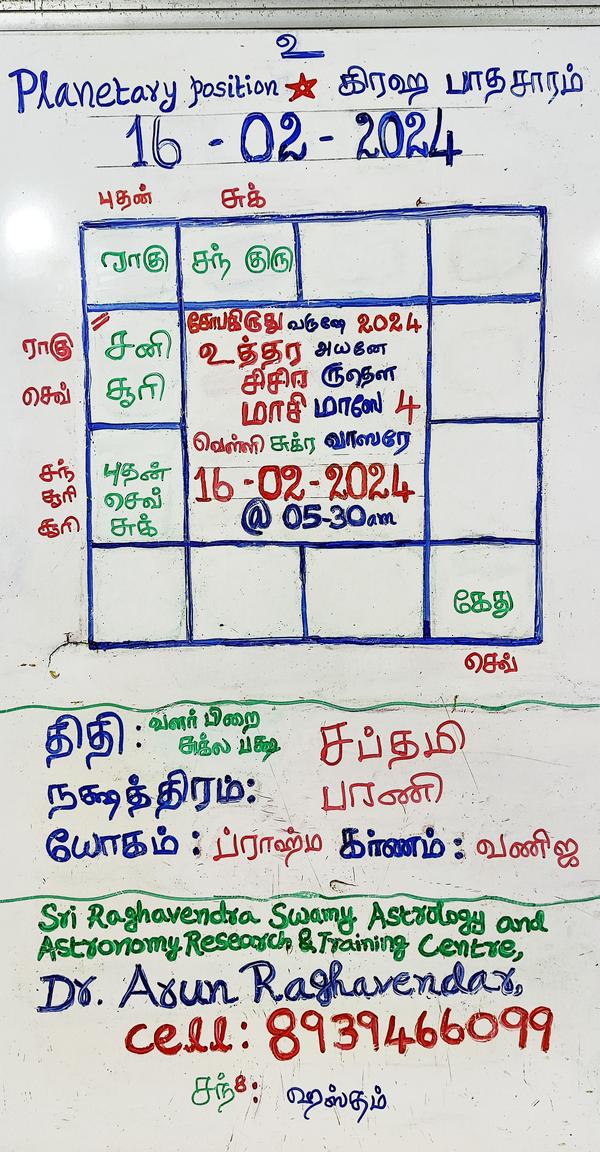 உ
Planetary position ★ கிரஹ பாதசாரம்
16 - 02 - 2024
புதன் சுக்
ராகு சந் குரு
சோபகிருது வருஷே 2024
ராகு சனி உத்தர அயனே
செவ் சூரி சிசிர ருதௌ
மாசி மாஸே 4
வெள்ளி சுக்ர வாஸரே
சந் புதன் 16-02-2024
சூரி செவ் @ 05-30am
சூரி சுக்
கேது
செவ்
திதி : வளர் பிறை
சுக்ல பக்ஷ சப்தமி
நக்ஷத்திரம்: பரணி
யோகம் : ப்ராஹ்ம கர்ணம் : வணிஜ
Sri Raghavendra Swamy Astrology and
Astronomy Research & Training Centre,
Dr. Arun Raghavendar,
cell: 8939466099
சந் 8: ஹஸ்தம்